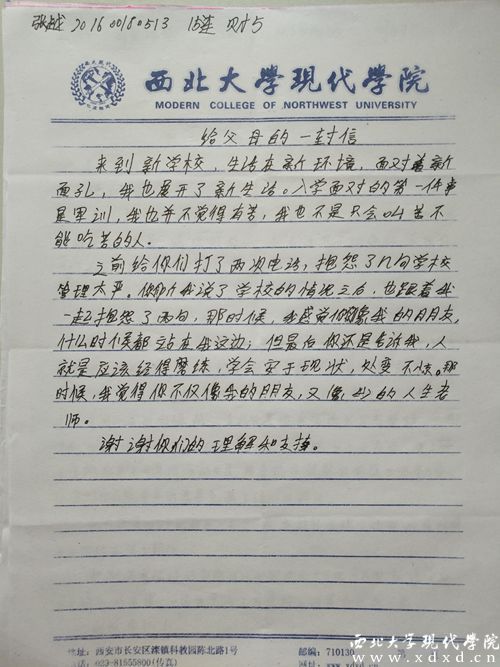 张越 2016 00180513 15连 财5
西北大學現代學院
MODERN COLLEGE OF NORTHWEST UNIVERSITY
给父母的一封信
来到新学校，生活在新环境，面对着新
面孔，我也展开了新生活。入学面对的第一件事
是军训，我也并不觉得有苦，我也不是只会叫苦不
能吃苦的人。
之前给你们打了两次电话，抱怨了几句学校
管理太严。你听我说了学校的情况之后，也跟着我
一起抱怨了两句，那时候，我感觉你像我的朋友，
什么时候都立在我这边；但最后你还是告诉我，人
就是应该经得磨练，学会安于现状，处变不惊。那
时候，我觉得你不仅像我的朋友，又像我的人生老
师。
谢谢你们的理解和支持。
地址：西安市长安区滦镇科教园陈北路1号
电话：029-81655800(传真)
邮编：710130
西北大学现代学院
www.xdxd.cn